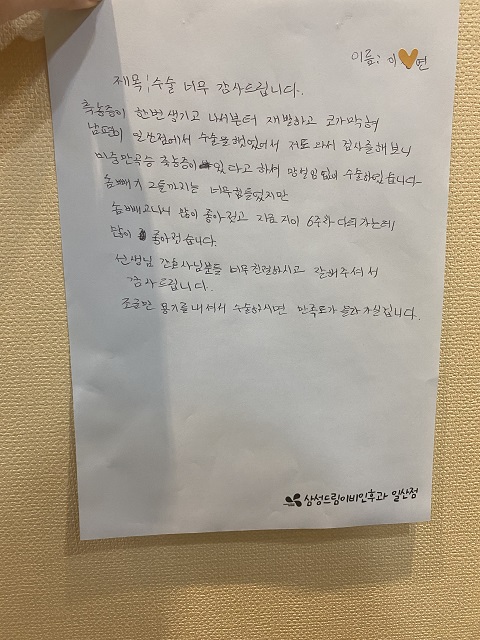 이름: 이 연
제목: 수술 너무 감사드립니다.
축농증이 한번 생기고 나서부터 재발하고 코가막혀
남편이 일산점에서 수술을 했었어서 저도 와서 검사를해보니
비중만곡증 축농증이 있다고 하셔 망설임없이 수술하였습니다
솜빼기 2일까지는 너무 힘들었지만
솜빼고나니 많이 좋아졌고 지금 거의 6주차 다되가는데
많이 좋아졌습니다.
선생님 간호사님분들 너무친절하시고 잘해주셔서
감사드립니다.
조금만 용기를 내셔서 수술하시면 만족도가 올라가실겁니다.
삼성드림이비인후과 일산점